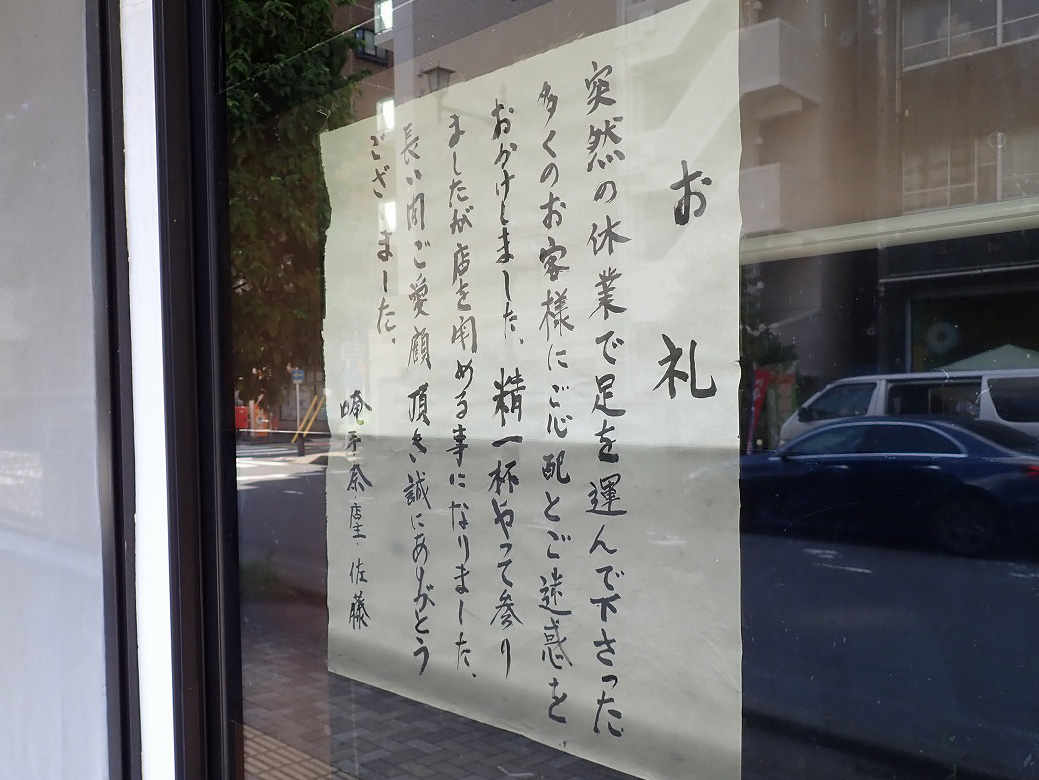 お礼
突然の休業で足を運んで下さった
多くのお客様にご心配とご迷惑を
おかけしました。精一杯やって参り
ましたが店を閉める事になりました。
長い間ご愛顧頂き誠にありがとう
ございました。
庵手奈店主・佐藤